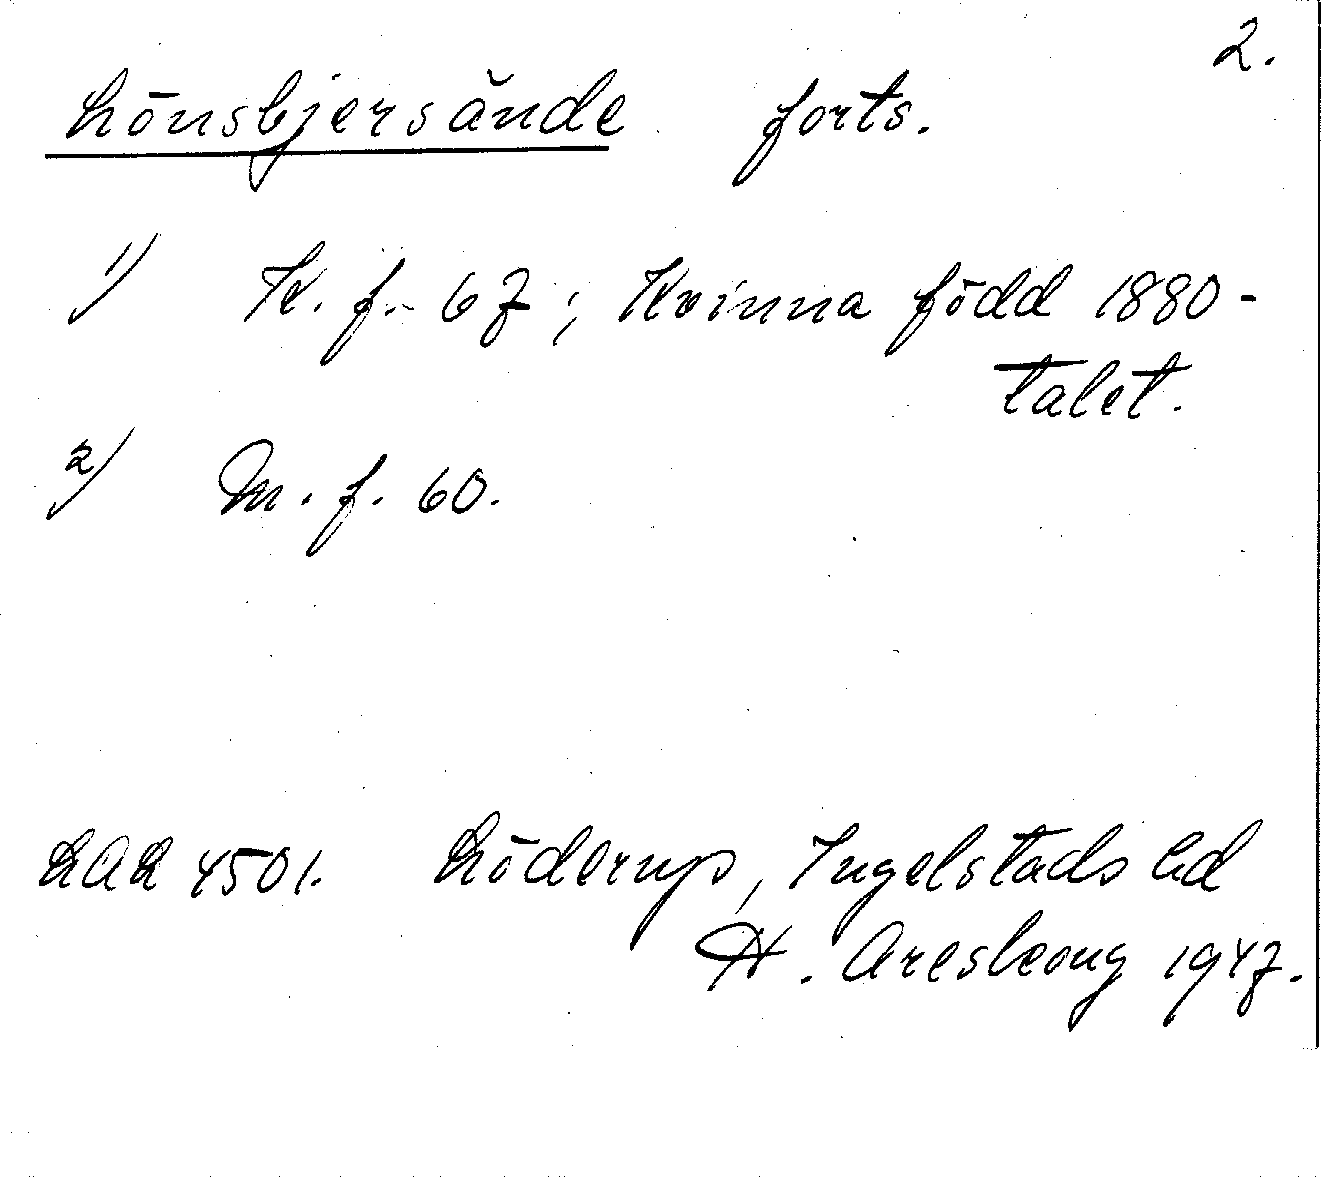 2.
Lönsbjersände forts.
1) K. f. 67; Kvinna född 1880-
talet.
2) M. f. 60.
LAL 4501. Löderup, Ingelstads hd
H. Areskoug 1947.